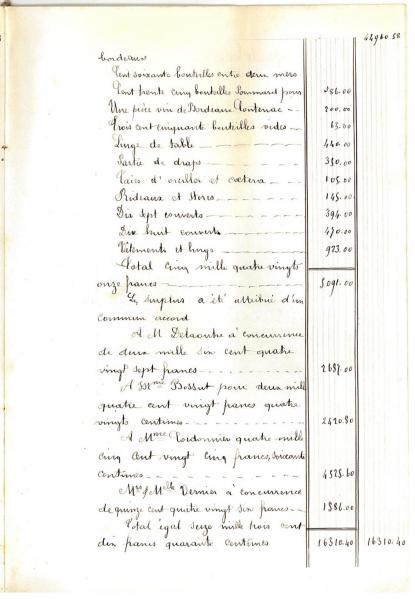 42960.58
bordeaux
Cent soixante bouteilles entre deux mers
Cent trente cinq bouteilles Pommard pour 286.00
Une pièce vin de Bordeaux 200.00
Trois cent cinquante bouteilles vides 63.00
Linge de table 440.00
Partie de draps 350.00
Taies d'oreiller et cœtera 105.00
Rideaux et Stores 145.00
Dix sept couverts 394.00
Dix huit couverts 470.00
Vêtements et linge 923.00
Total Cinq mille quatre vingt
onze francs 5091.00
Le surplus a été attribué d'un
commun accord
A M Delaoutre à concurrence
de deux mille six cent quatre
vingt sept francs 2687.00
A Mme Bossut pour deux mille
quatre cent vingt francs quatre
vingts centimes 2420.80
A Mme Cordonnier quatre mille
cinq cent vingt cinq francs, soixante
centimes 4525.60
Mrs & Melle Dernier à concurrence
de quinze cent quatre vingt six francs 1586.00
Total égal seize mille trois cent
dix francs quarante centimes 16310.40 16310.40